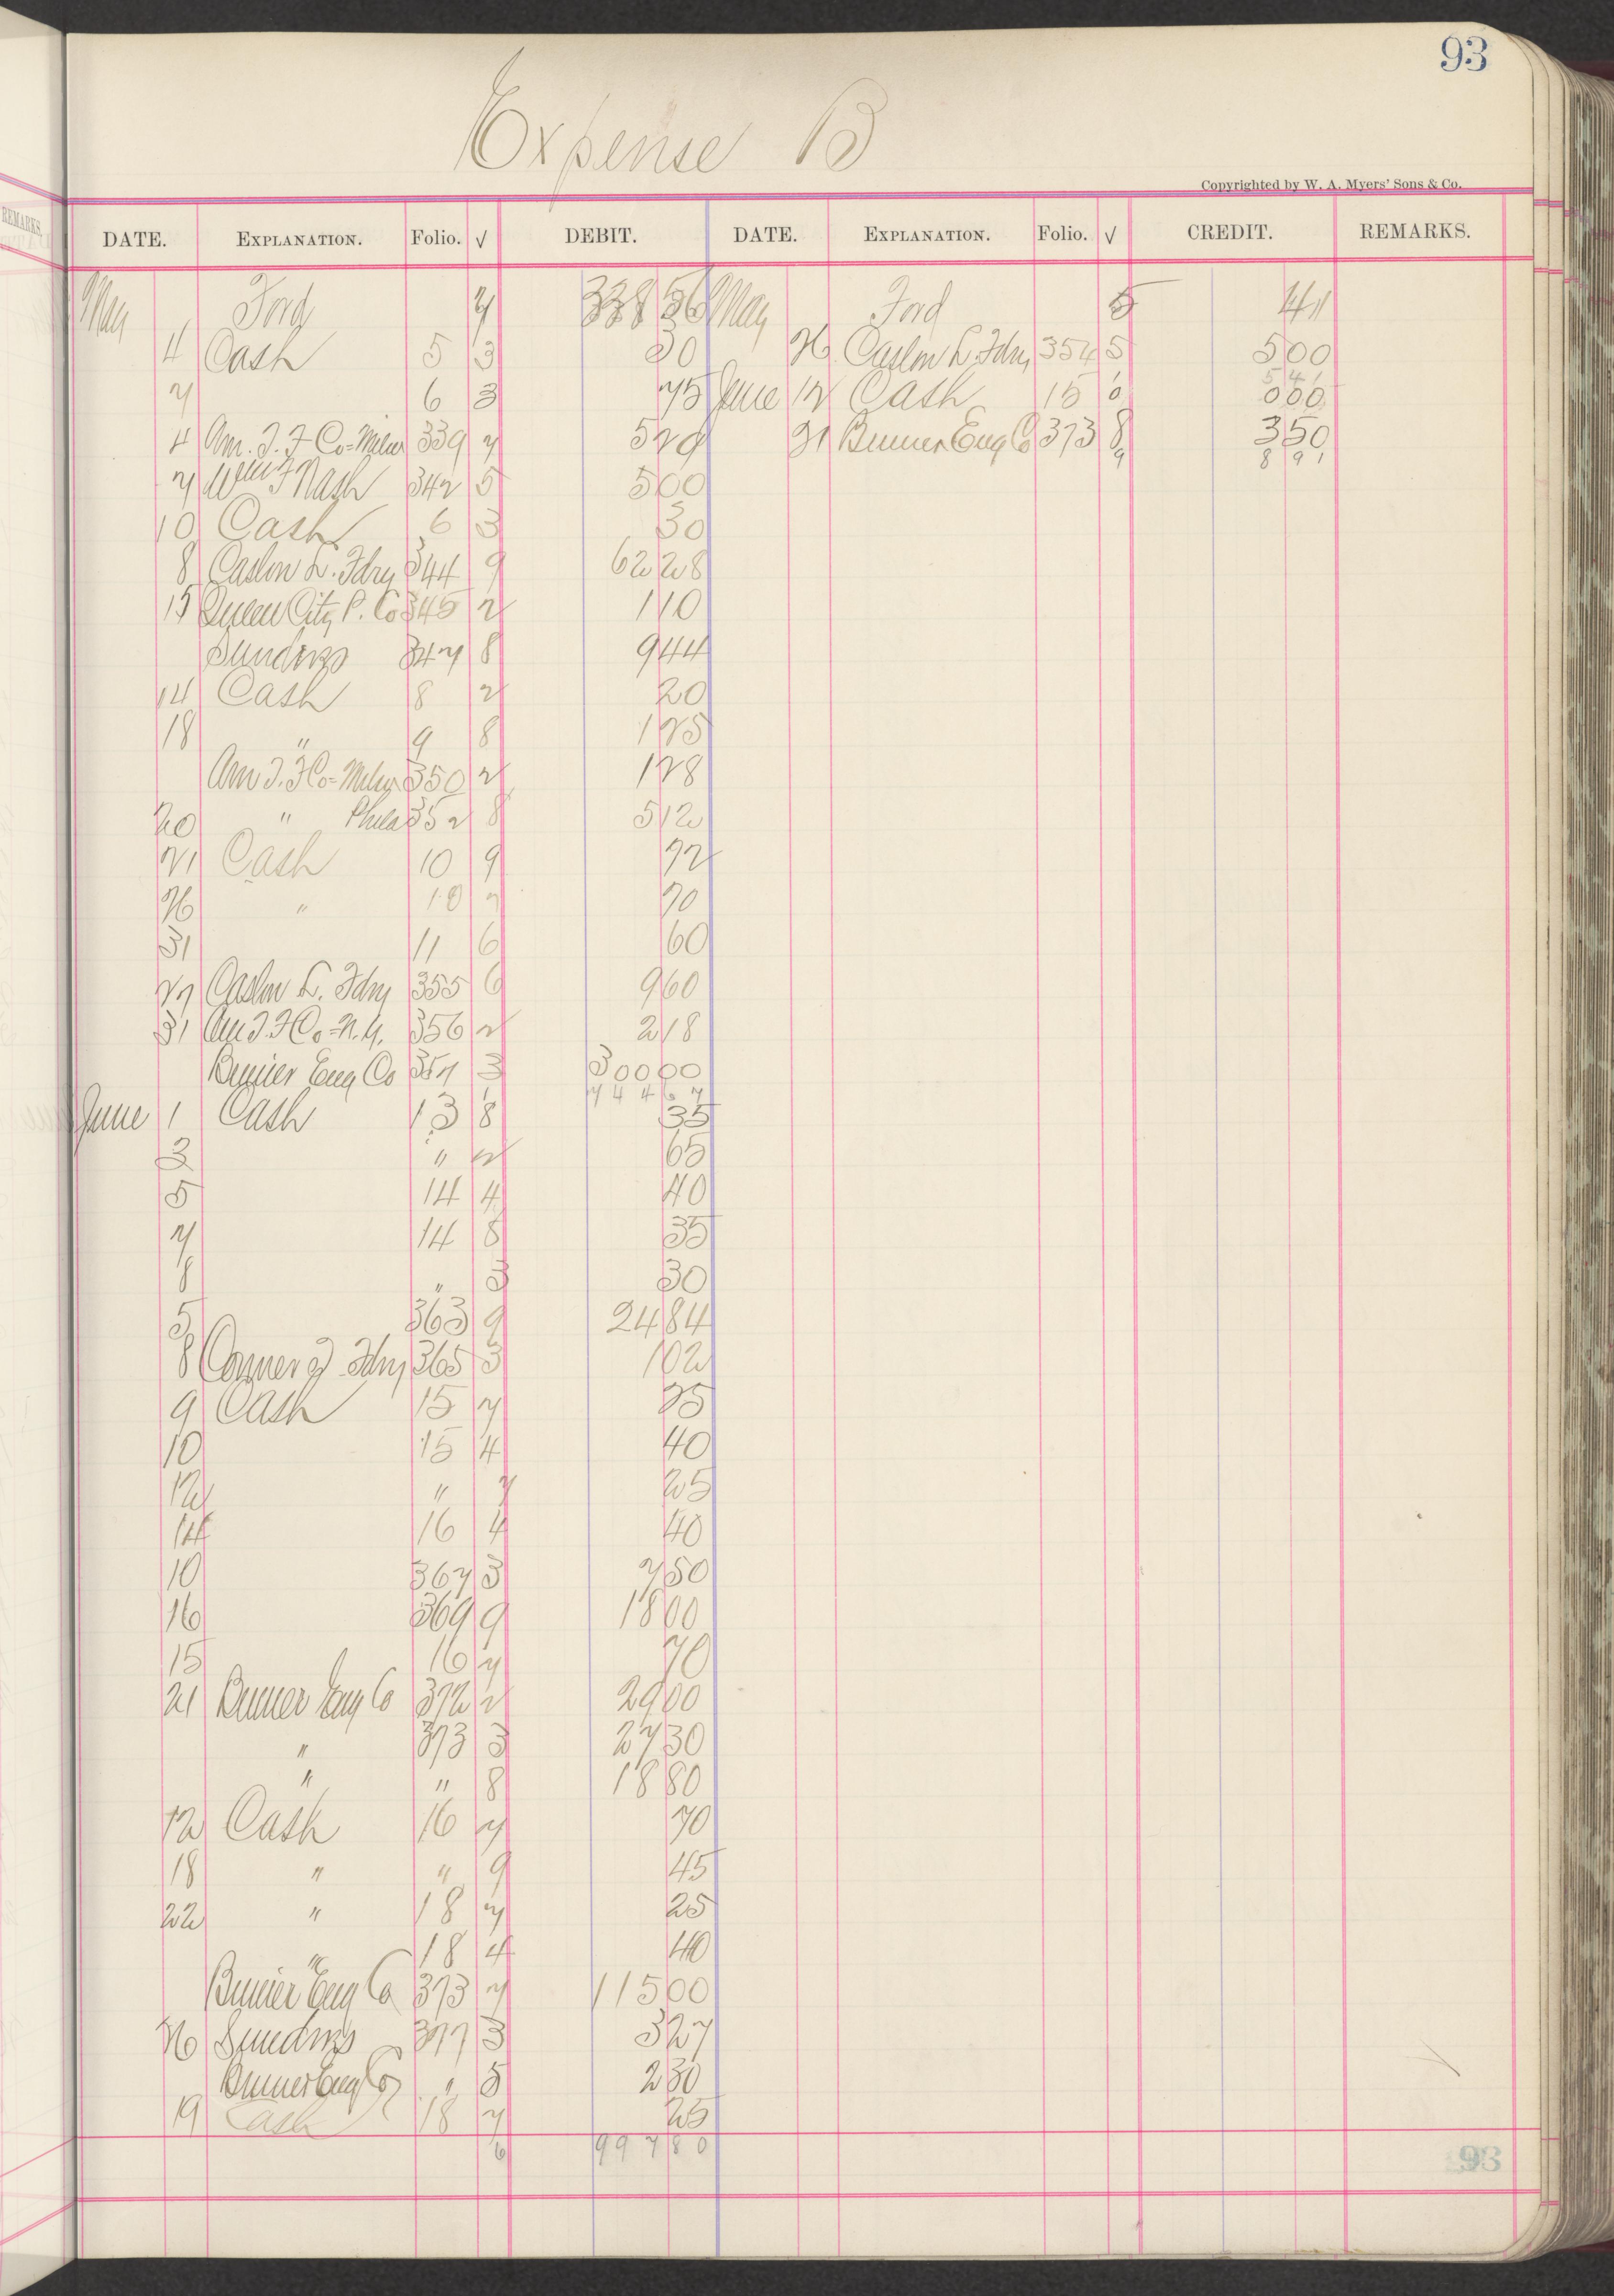 93
Expense B
Copyrighted by W. A. Myers' Sons & Co.
REMARKS.
DATE. EXPLANATION. Folio. √ DEBIT. DATE. EXPLANATION. Folio. √ CREDIT. REMARKS.
May Ford 7 338 56 May Ford 5 44
4 Cash 5 3 30 26 Caslon L. Fdry 354 5 5 00
7 6 3 75 June 12 Cash 15 6
5 4 4
4 Am. T. F Co-Milw 339 7 5 29 21 Binner Eng Co 373 8 3 50
8 9 1
7 Wm F Nash 342 5 5 00
10 Cash 6 3 30
8 Caslon L. Fdry 344 9 62 28
15 Queen City P. Co 345 2 1 10
Sundries 347 8 9 44
14 Cash 8 2 20
18 " 9 8 1 75
Am T. F Co-Milw 350 2 1 28
20 " Phila 352 8 5 12
21 Cash 10 9 72
26 " 10 7 70
31 11 6 60
27 Caslon L. Fdry 355 6 9 60
31 Am T. F Co. N.Y. 356 2 2 18
Binner Eng Co 357 3 300 00
744 67
June 1 Cash 13 8 35
3 " 2 65
5 14 4 40
7 14 8 35
8 " 3 30
5 363 9 24 84
8 365 3 1 02
9 Cash 15 7 25
10 15 4 40
12 " 7 25
14 16 4 40
10 367 3 7 50
16 369 9 18 00
15 16 7 70
21 Binner Eng Co 372 2 29 00
" 373 3 27 30
" " 8 18 80
12 Cash 16 7 70
18 " " 9 45
22 " 18 7 25
" 18 4 40
Binner Eng Co 373 7 115 00
26 Sundries 377 3 3 27
Binner Eng Co " 5 2 50
19 Cash 18 7 25
6 997 80
93